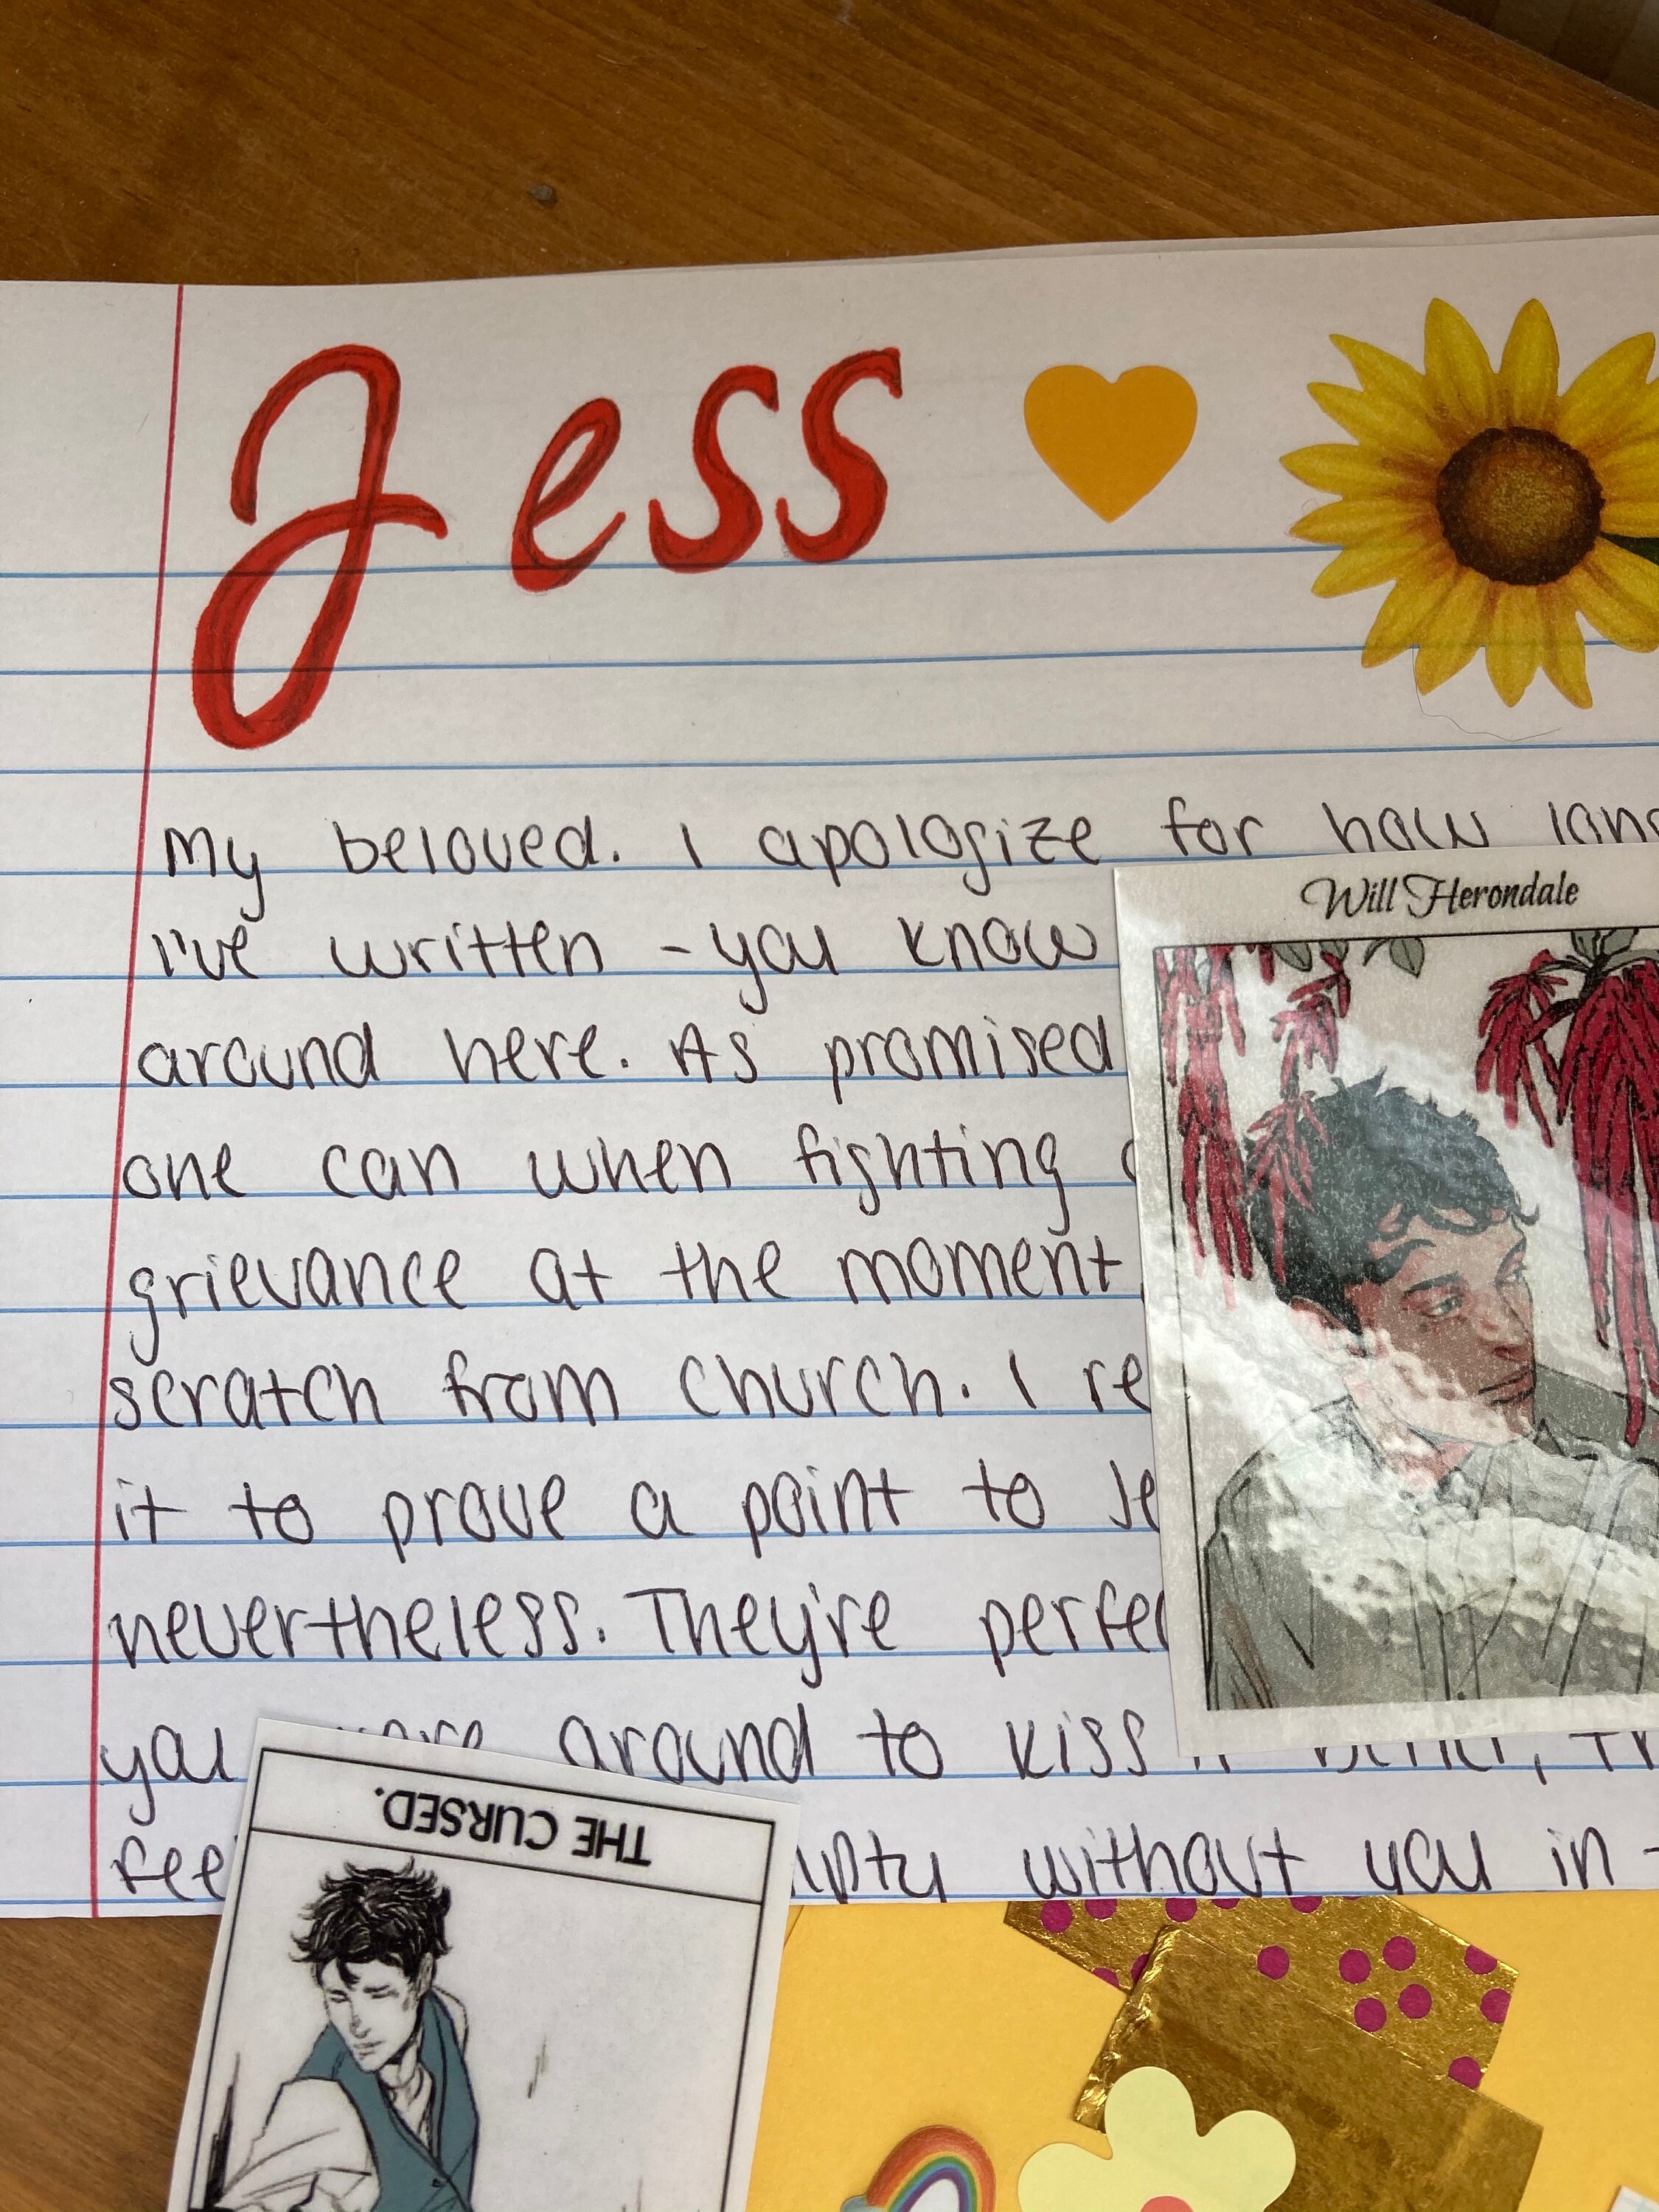 Jess
My beloved. I apologize for how long
I've written - you know
around here. As promised
one can when fighting
grievance at the moment
scratch from church. I
it to prove a point to
nevertheless. They're
you were around to kiss it better,
without you in
Will Herondale
THE CURSED.